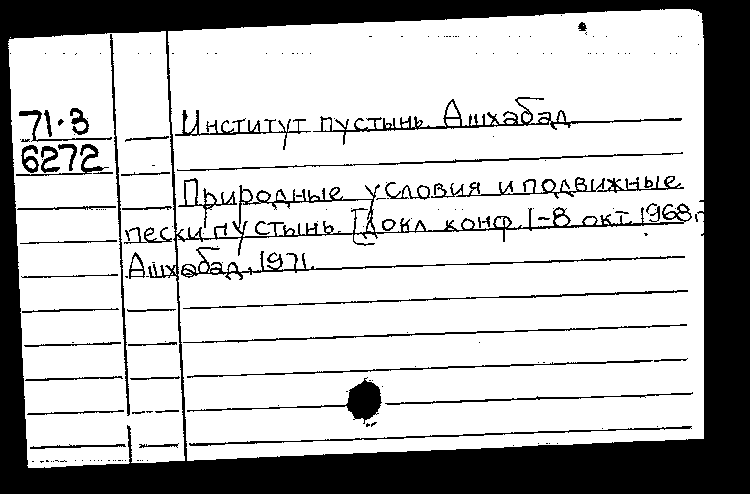 71-3
6272
Институт пустынь. Ашхабад
Природные условия и подвижные
пески пустынь. [Докл конф. 1-8 окт. 1968г]
Ашхабад, 1971.